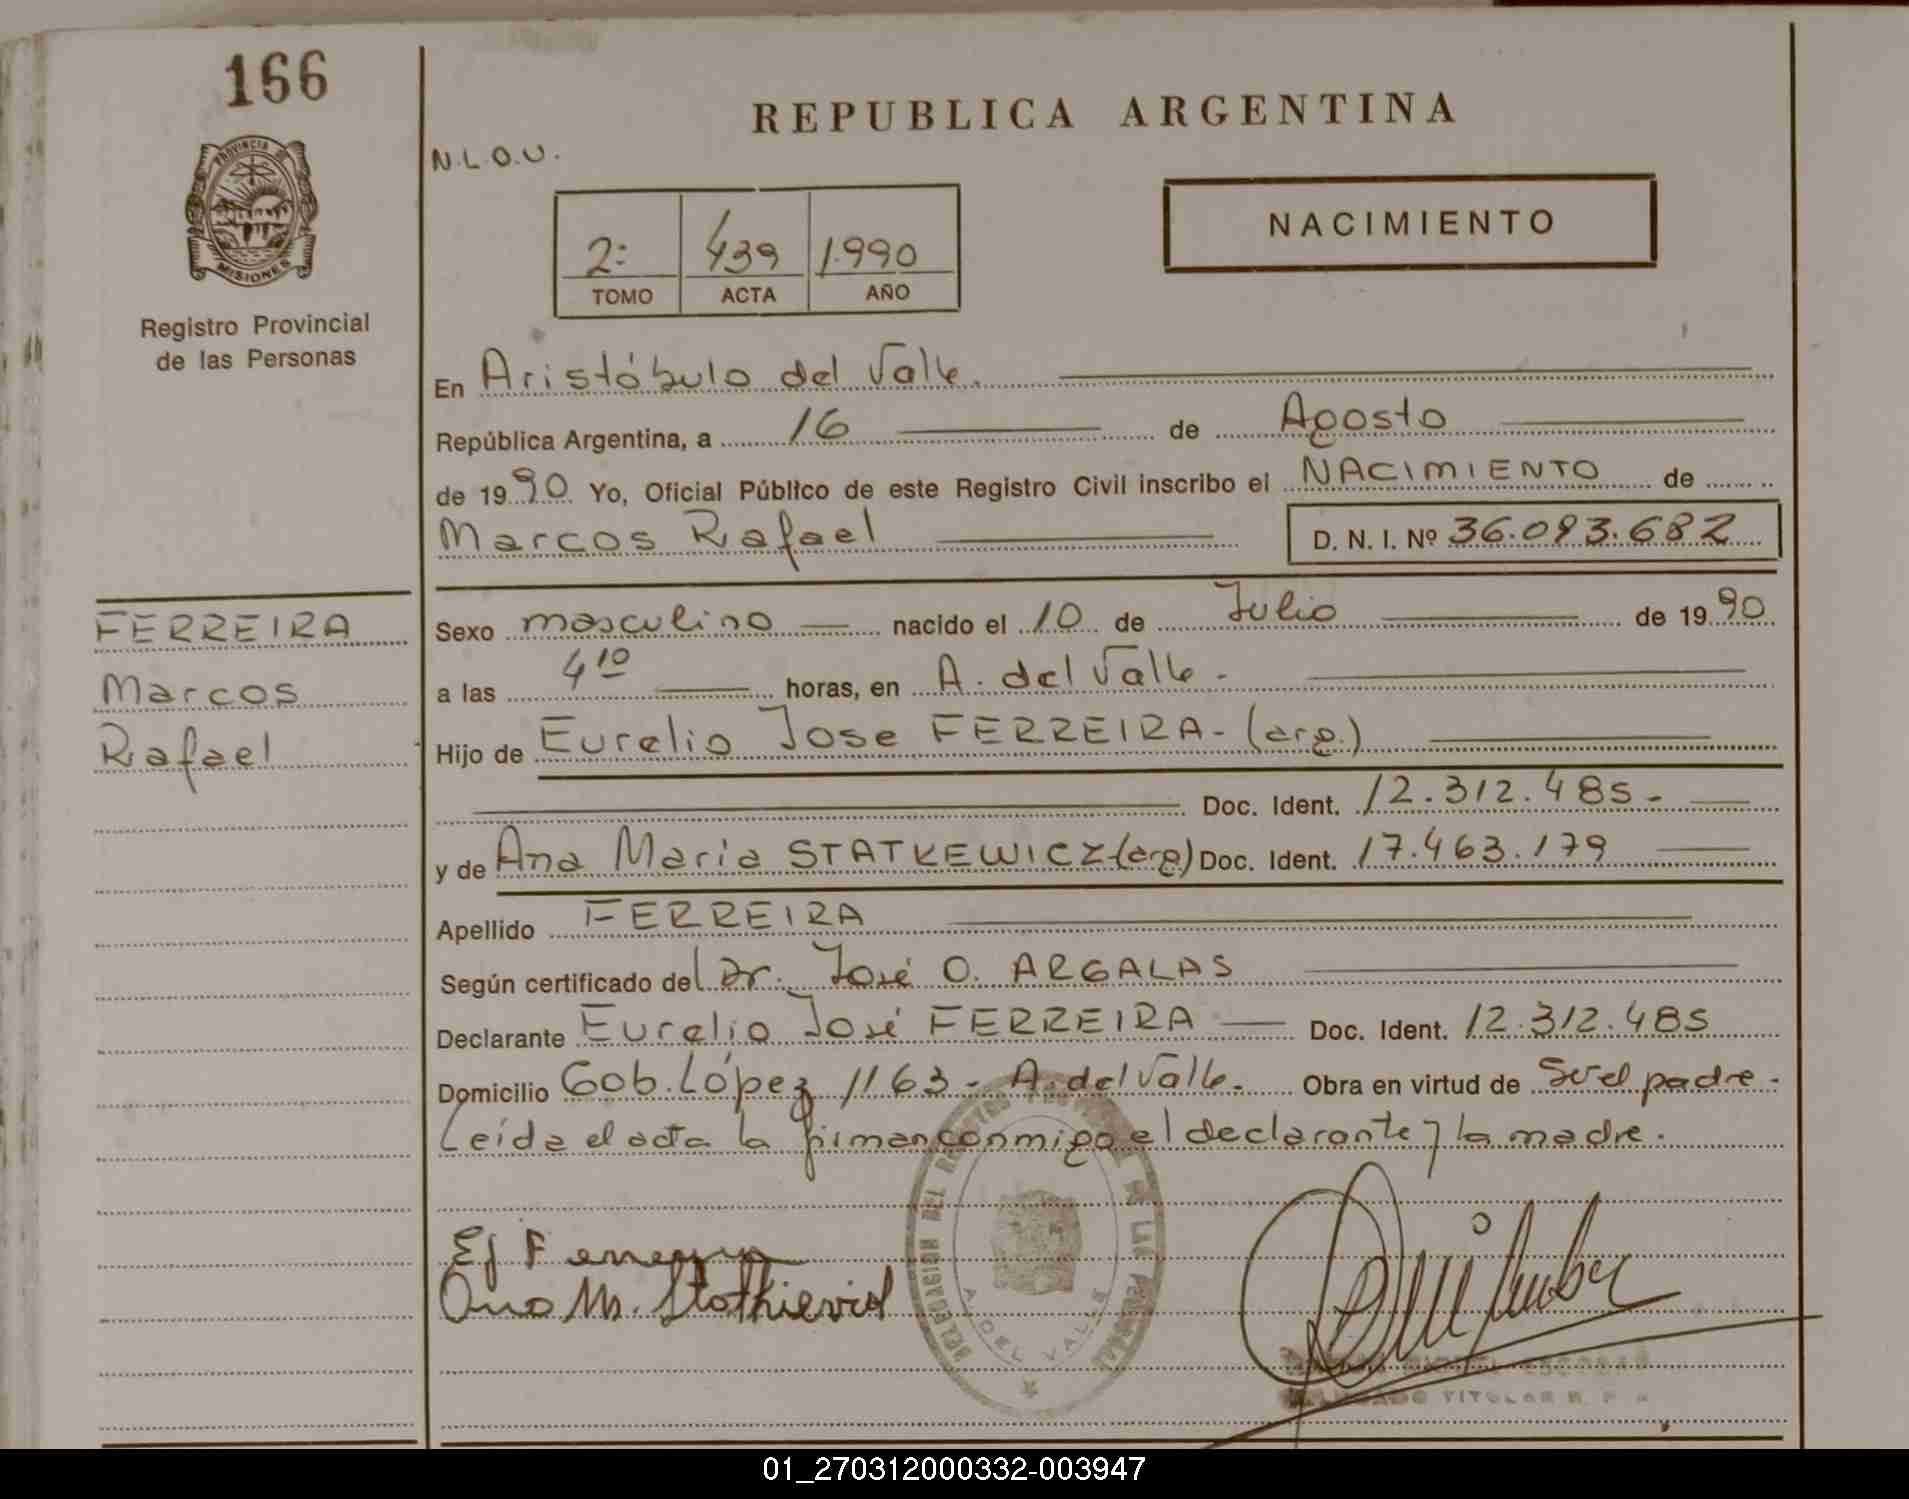 166
REPUBLICA ARGENTINA
N.L.O.U.
PROVINCIA DE
MISIONES
2:
439
1.990
TOMO
ACTA
AÑO
NACIMIENTO
Registro Provincial
de las Personas
En Aristóbulo del Valle.
República Argentina, a 16 de Agosto
de 1990 Yo, Oficial Público de este Registro Civil inscribo el NACIMIENTO de
Marcos Rafael D. N. I. Nº 36.093.682
FERREIRA
Marcos
Rafael
Sexo masculino nacido el 10 de Julio de 1990
a las 4 10 horas, en A. del Valle.
Hijo de Eurelio Jose FERREIRA - (arg.)
Doc. Ident. 12.312.485 -
y de Ana Maria STATKEWICZ (arg) Doc. Ident. 17.463.179
Apellido FERREIRA
Según certificado del Dr. José O. ARGALAS
Declarante Eurelio José FERREIRA Doc. Ident. 12.312.485
Domicilio Gob. López 1163 - A. del Valle. Obra en virtud de Ser el padre -
Leída el acta la firman conmigo el declarante y la madre.
DELEGACION DEL REGISTRO PROVINCIAL DE LAS PERSONAS
A. DEL VALLE
TITULAR R. P.
01_270312000332-003947